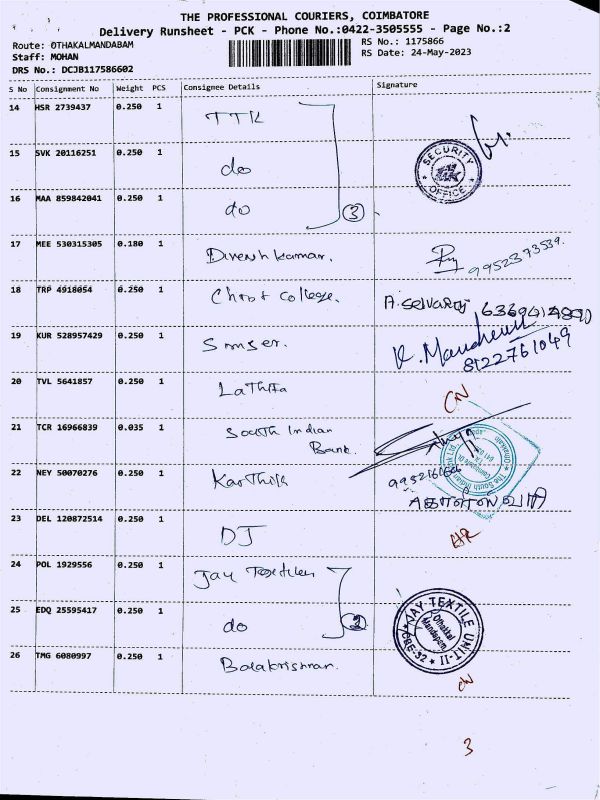 THE PROFESSIONAL COURIERS, COIMBATORE
Delivery Runsheet - PCK - Phone No.:0422-3505555 - Page No.:2
Route: OTHAKALMANDABAM
RS No.: 1175866
Staff: MOHAN
RS Date: 24-May-2023
DRS No.: DCJB117586602
S No Consignment No Weight PCS Consignee Details Signature
14 HSR 2739437 0.250 1 TTK
15 SVK 20116251 0.250 1 do
SECURITY OFFICE
16 MAA 859842041 0.250 1 do
3
17 MEE 530315305 0.180 1 Dinesh kumar. 9952373539.
18 TRP 4918054 0.250 1 Christ College. A. Selvaraj
19 KUR 528957429 0.250 1 8122761049
20 TVL 5641857 0.250 1 Lathifa CN
21 TCR 16966839 0.035 1 South Indian
Bank.
The South Indian
22 NEY 50070276 0.250 1 Karthik
23 DEL 120872514 0.250 1 DJ
24 POL 1929556 0.250 1 Jay Textiles
25 EDQ 25595417 0.250 1 do
2
JAY-TEXTILE UNIT-II CBE-32
Othakkal
Mandapam
26 TMG 6080997 0.250 1 Balakrishnan.
CN
3